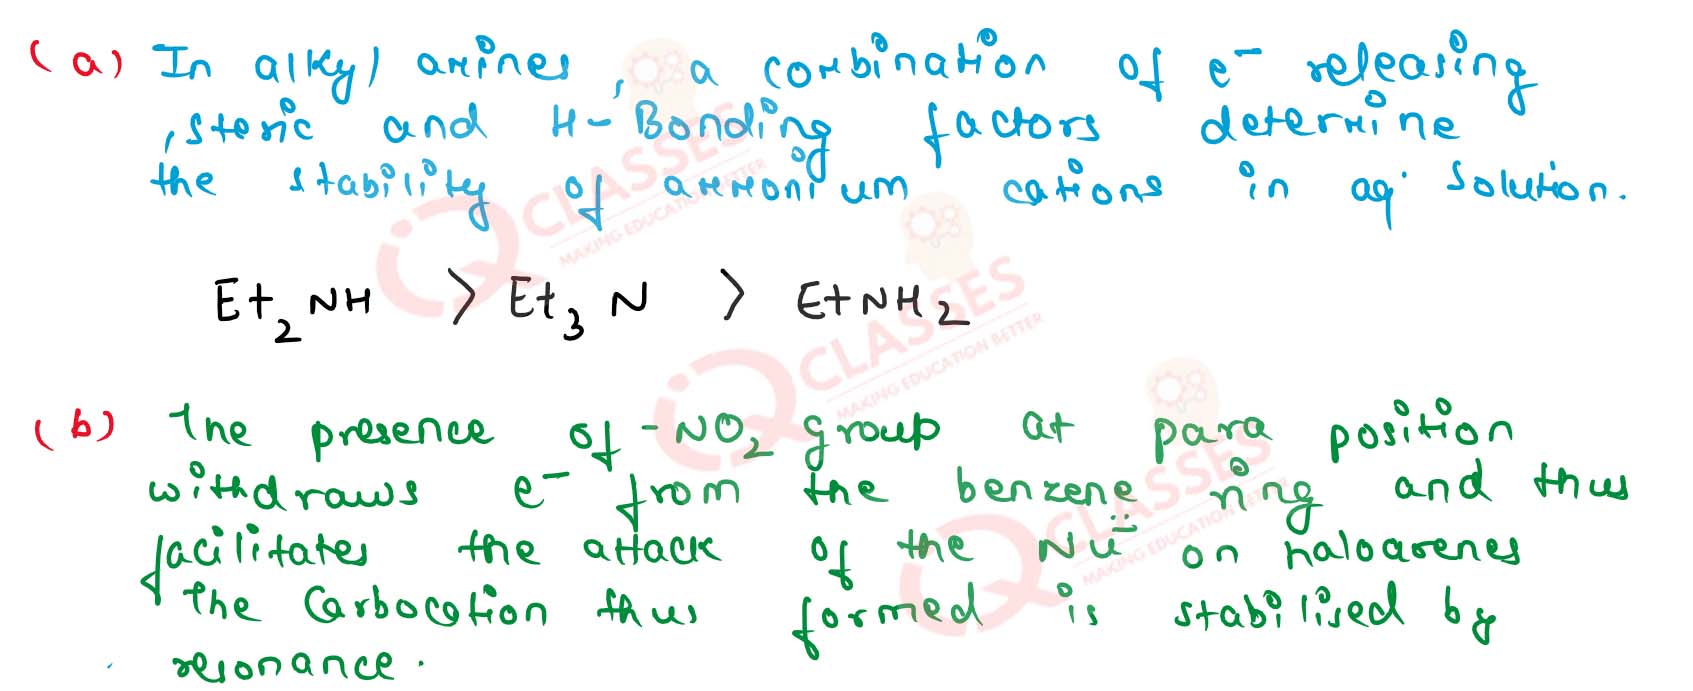 (a) In alkyl amines, a combination of e⁻ releasing
, steric and H-Bonding factors determine
the stability of ammonium cations in aq. solution.
Et₂NH > Et₃N > EtNH₂
(b) The presence of -NO₂ group at para position
withdraws e⁻ from the benzene ring and thus
facilitates the attack of the Nu⁻ on haloarenes
The Carbocation thus formed is stabilised by
resonance.
IQ CLASSES
MAKING EDUCATION BETTER
IQ CLASSES
MAKING EDUCATION BETTER
IQ CLASSES
MAKING EDUCATION BETTER